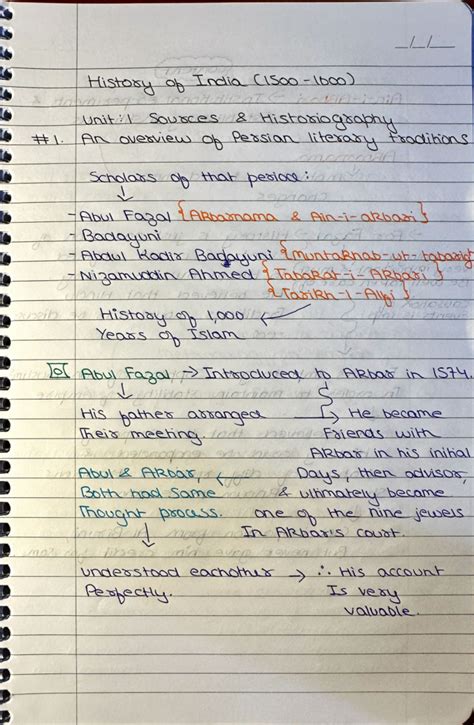 _/_/_
History of India (1500-1600)
Unit:1 Sources & Historiography
#1. An overview of Persian literary traditions
Scholars of that period:
- Abul Fazal {Akbarnama & Ain-i-akbari}
- Badayuni
- Abdul Kadir Badayuni {muntakhab-ut-
- Nizamuddin Ahmed {Tabakat-i-Akbari}
{Tarikh-i-Alfi}
History of 1,000
Years of Islam
Abul Fazal → Introduced to Akbar in 1574.
His father arranged
Their meeting
He became
Friends with
Akbar in his initial
Days, then advisor,
& ultimately became
one of the nine jewels
In Akbar's court.
Abul & Akbar,
Both had same
Thought process.
understood eachother → ∴ His account
Perfectly.
Is very
valuable.